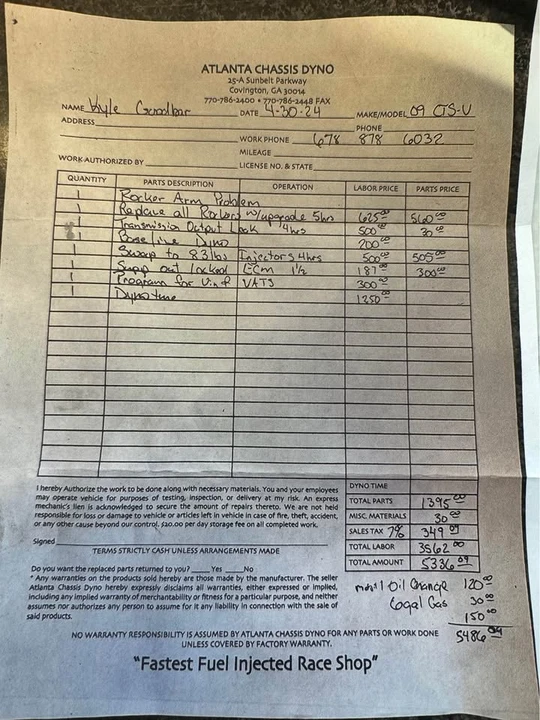 ATLANTA CHASSIS DYNO
25-A Sunbelt Parkway
Covington, GA 30014
770-786-2400 • 770-786-2448 FAX
NAME Kyle DATE 4-30-24 MAKE/MODEL 09 CTS-V
ADDRESS PHONE
WORK PHONE 678 878 6032
MILEAGE
WORK AUTHORIZED BY LICENSE NO. & STATE
QUANTITY PARTS DESCRIPTION OPERATION LABOR PRICE PARTS PRICE
1 Rocker Arm Problem
1 Replace all Rockers w/upgrade 5hrs 625.00 560.00
1 Transmission Output Leak 4hrs 500.00 30.00
1 Base line Dyno 200.00
1 Swap to 83lbs Injectors 4hrs 500.00 505.00
1 Swap out locked ECM 1½ 187.00 300.00
1 Program for Vin# VATS 300.00
1 Dyno tune 1250.00
I hereby Authorize the work to be done along with necessary materials. You and your employees
may operate vehicle for purposes of testing, inspection, or delivery at my risk. An express
mechanic's lien is acknowledged to secure the amount of repairs thereto. We are not held
responsible for loss or damage to vehicle or articles left in vehicle in case of fire, theft, accident,
or any other cause beyond our control. $20.00 per day storage fee on all completed work.
Signed
TERMS STRICTLY CASH UNLESS ARRANGEMENTS MADE
DYNO TIME
TOTAL PARTS 1395.00
MISC. MATERIALS 30.00
SALES TAX 7% 349.09
TOTAL LABOR 3562.00
TOTAL AMOUNT 5336.09
Do you want the replaced parts returned to you? Yes No
* Any warranties on the products sold hereby are those made by the manufacturer. The seller
Atlanta Chassis Dyno hereby expressly disclaims all warranties, either expressed or implied,
including any implied warranty of merchantability or fitness for a particular purpose, and neither
assumes nor authorizes any person to assume for it any liability in connection with the sale of
said products.
mobil 1 Oil Change 120.00
Gas 30.00
150.00
5486.09
NO WARRANTY RESPONSIBILITY IS ASSUMED BY ATLANTA CHASSIS DYNO FOR ANY PARTS OR WORK DONE
UNLESS COVERED BY FACTORY WARRANTY.
"Fastest Fuel Injected Race Shop"